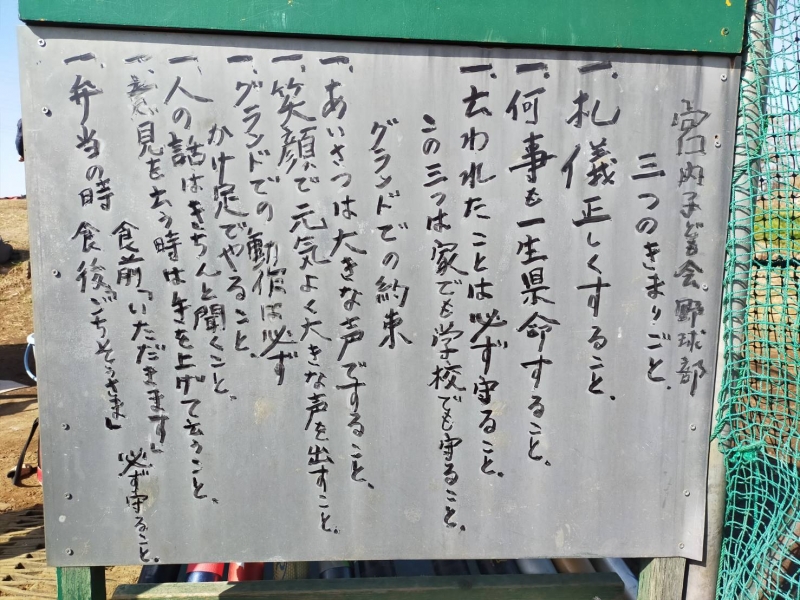 宮内子ども会野球部
三つのきまりごと、
一、礼儀正しくすること、
一、何事も一生県命すること、
一、云われたことは必ず守ること、
この三つは家でも学校でも守ること、
グランドでの約束
一、あいさつは大きな声ですること、
一、笑顔で元気よく大きな声を出すこと、
一、グランドでの動作は必ず
かけ足でやること、
一、人の話はきちんと聞くこと、
一、意見を云う時は手を上げて云うこと、
一、弁当の時 食前「いただきます」
食後「ごちそうさま」 必ず守ること、